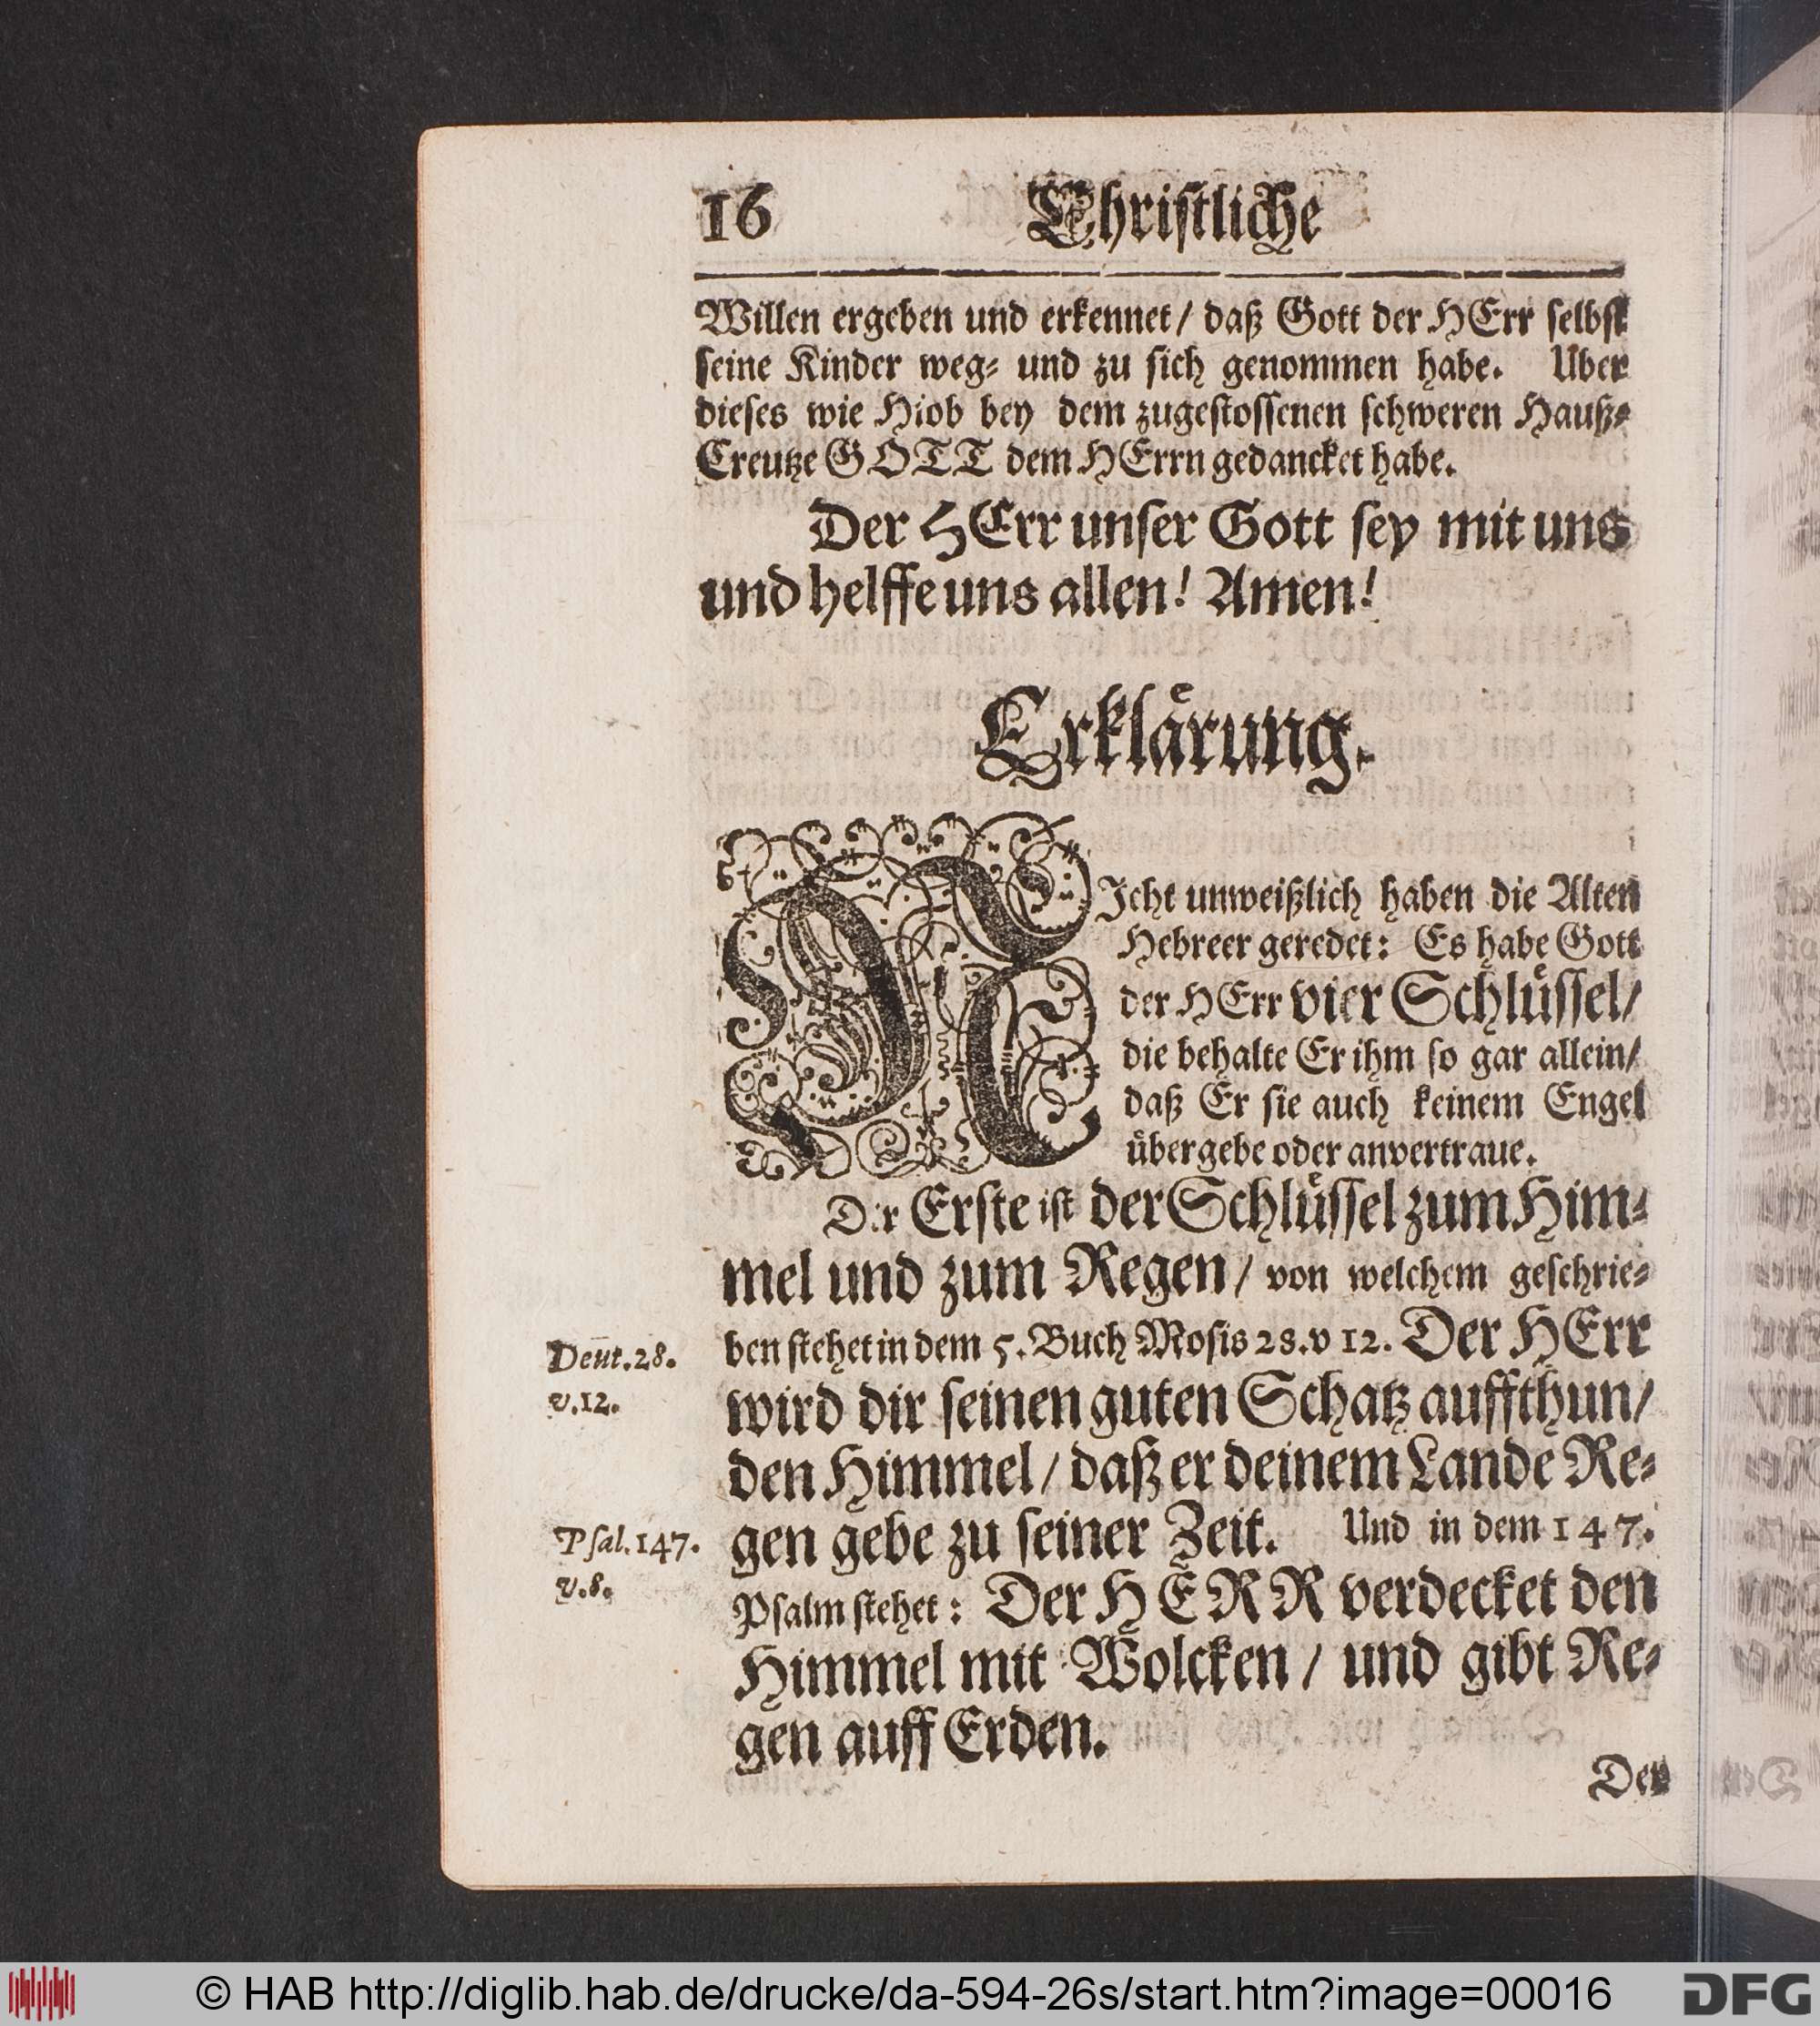 16 Christliche
Willen ergeben und erkennet / daß Gott der HErr selbst
seine Kinder weg⸗ und zu sich genommen habe. Uber
dieses wie Hiob bey dem zugestossenen schweren Hauß⸗
Creutze GOTT dem HErrn gedancket habe.
Der HErr unser Gott sey mit uns
und helffe uns allen! Amen!
Erklärung.
NIcht unweißlich haben die Alten
Hebreer geredet: Es habe Gott
der HErr vier Schlüssel /
die behalte Er ihm so gar allein /
daß Er sie auch keinem Engel
übergebe oder anvertraue.
Der Erste ist der Schlüssel zum Him⸗
mel und zum Regen / von welchem geschrie⸗
Deut. 28. ben stehet in dem 5. Buch Mosis 28. v 12. Der HErr
v. 12. wird dir seinen guten Schatz auffthun /
den Himmel / daß er deinem Lande Re⸗
Psal. 147. gen gebe zu seiner Zeit. Und in dem 147.
v. 8. Psalm stehet: Der HERR verdecket den
Himmel mit Wolcken / und gibt Re⸗
gen auff Erden.
Der
© HAB http://diglib.hab.de/drucke/da-594-26s/start.htm?image=00016 DFG